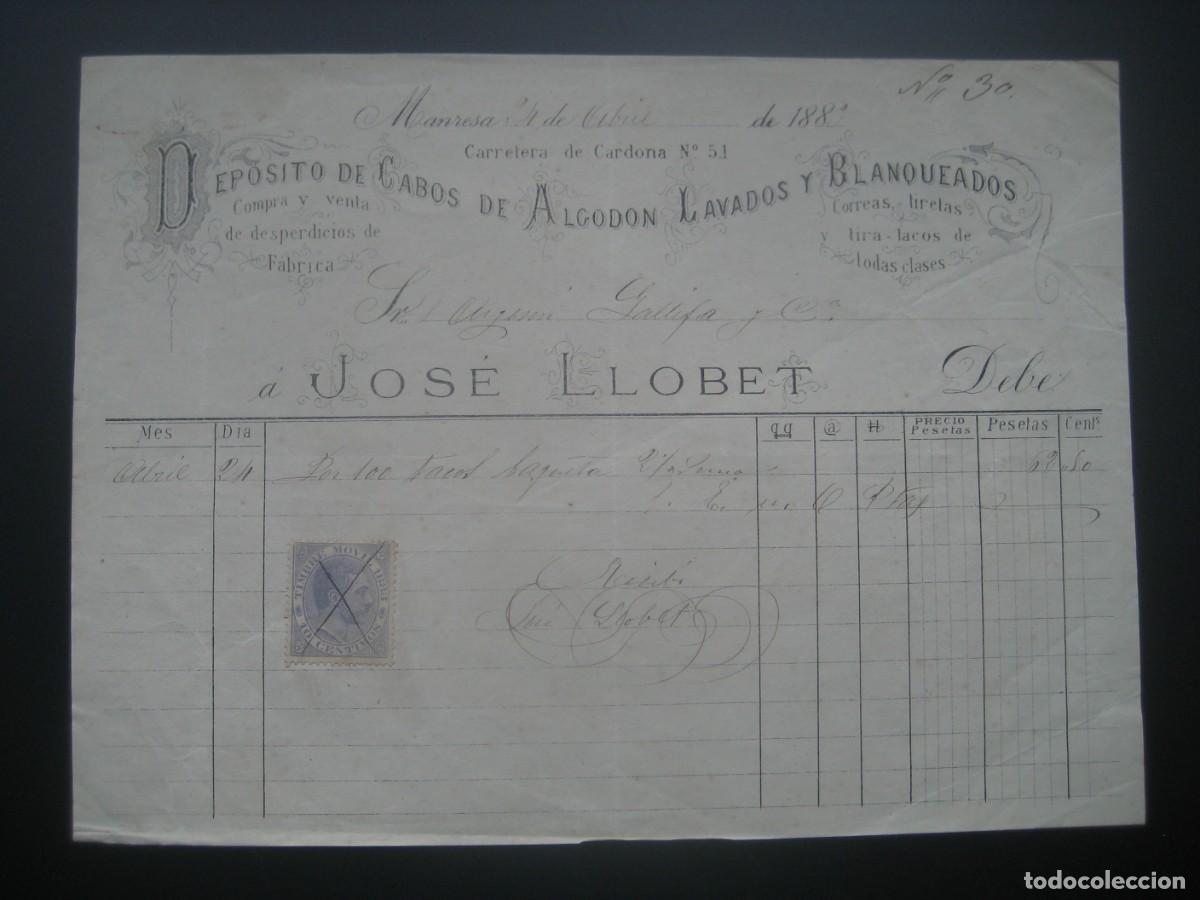 Nº 30.
Manresa 24 de Abril de 188
Carretera de Cardona Nº 51
DEPÓSITO DE CABOS DE ALGODON LAVADOS Y BLANQUEADOS
Compra y venta
de desperdicios de
Fábrica
Correas, tiretas
y tira-tacos de
todas clases
Sr. Gallifa y Cª
á JOSÉ LLOBET Debe
Mes Dia qq @ PRECIO Pesetas Pesetas Cents
Abril 24 Por 100 Tacos 62,50
TIMBRE MOVIL
10 CENTIMOS
Recibí
José Llobet
todocoleccion